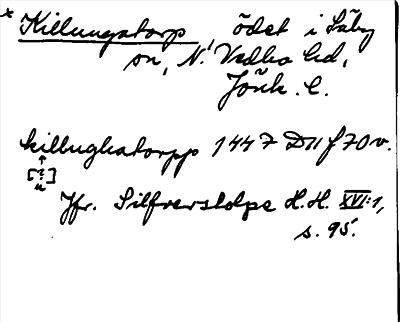 * Killungatorp, ödet i Säby
sn, N. Vedbo hd,
Jönk. l.
killnghatorpp 1447 D11 f 70 v.
↑
[?]
u
Jfr. Silfverstolpe H.H. XVI:1,
s. 95.